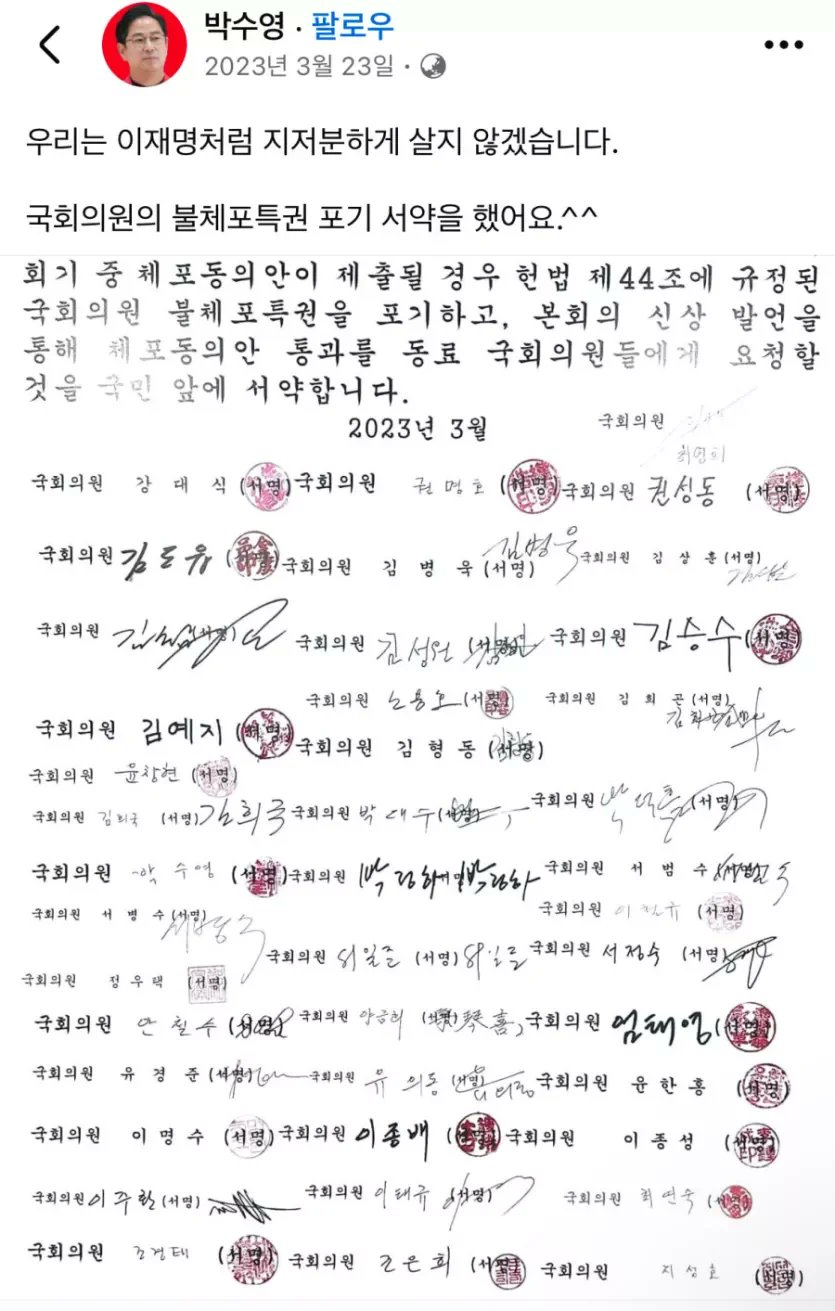 박수영 · 팔로우
2023년 3월 23일 ·
우리는 이재명처럼 지저분하게 살지 않겠습니다.
국회의원의 불체포특권 포기 서약을 했어요.^^
회기 중 체포동의안이 제출될 경우 헌법 제44조에 규정된
국회의원 불체포특권을 포기하고, 본회의 신상 발언을
통해 체포동의안 통과를 동료 국회의원들에게 요청할
것을 국민 앞에 서약합니다.
2023년 3월
국회의원 최영희
국회의원 강대식 (서명) 국회의원 권명호 (서명) 국회의원 권성동 (서명)
국회의원 (서명) 국회의원 김병욱 (서명) 김병욱 국회의원 김상훈 (서명)
국회의원 국회의원 김성원 국회의원 김승수 (서명)
국회의원 노용호 (서명) 국회의원 김희곤 (서명)
국회의원 김예지 (서명) 국회의원 김형동 (서명)
국회의원 윤창현 (서명)
국회의원 김희국 (서명) 김희국 국회의원 박대수 국회의원 박덕흠 (서명)
국회의원 박수영 (서명) 국회의원 박정하 서명 박정하 국회의원 서범수
국회의원 서병수 (서명) 국회의원 (서명)
국회의원 서일준 (서명) 서일준 국회의원 서정숙 (서명)
국회의원 정우택 (서명)
국회의원 안철수 (서명) 국회의원 양금희 국회의원 엄태영 (서명)
국회의원 유경준 (서명) 국회의원 유의동 (서명) 국회의원 윤한홍 (서명)
국회의원 이명수 (서명) 국회의원 이종배 (서명) 국회의원 이종성 (서명)
국회의원 이주환 (서명) 국회의원 이태규 (서명) 국회의원 최연숙 (서명)
국회의원 조경태 (서명) 국회의원 조은희 (서명) 국회의원 지성호 (서명)